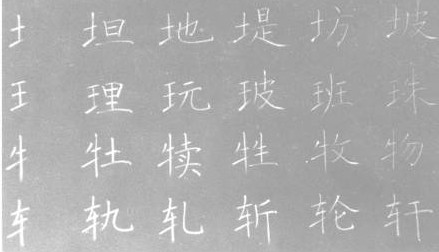 土 坦 地 堤 坊 坡
王 理 玩 玻 班 珠
牛 牡 犊 牲 牧 物
车 轨 轧 斩 轮 轩